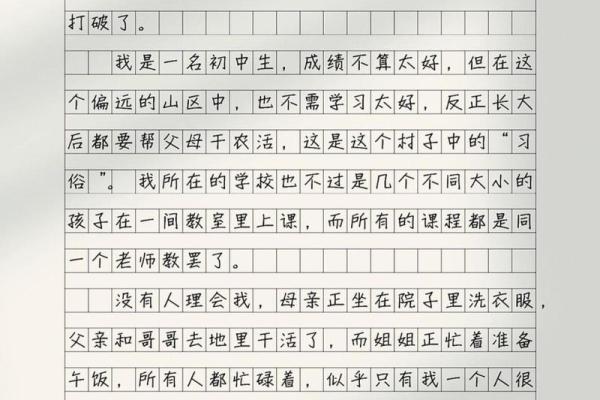 打破了。
我是一名初中生，成绩不算太好，但在这
个偏远的山区中，也不需学习太好，反正长大
后都要帮父母干农活，这是这个村子中的“习
俗”。我所在的学校也不过是几个不同大小的
孩子在一间教室里上课，而所有的课程都是同
一个老师教罢了。
没有人理会我，母亲正坐在院子里洗衣服，
父亲和哥哥去地里干活了，而姐姐正忙着准备
午饭，所有人都忙碌着，似乎只有我一个人很